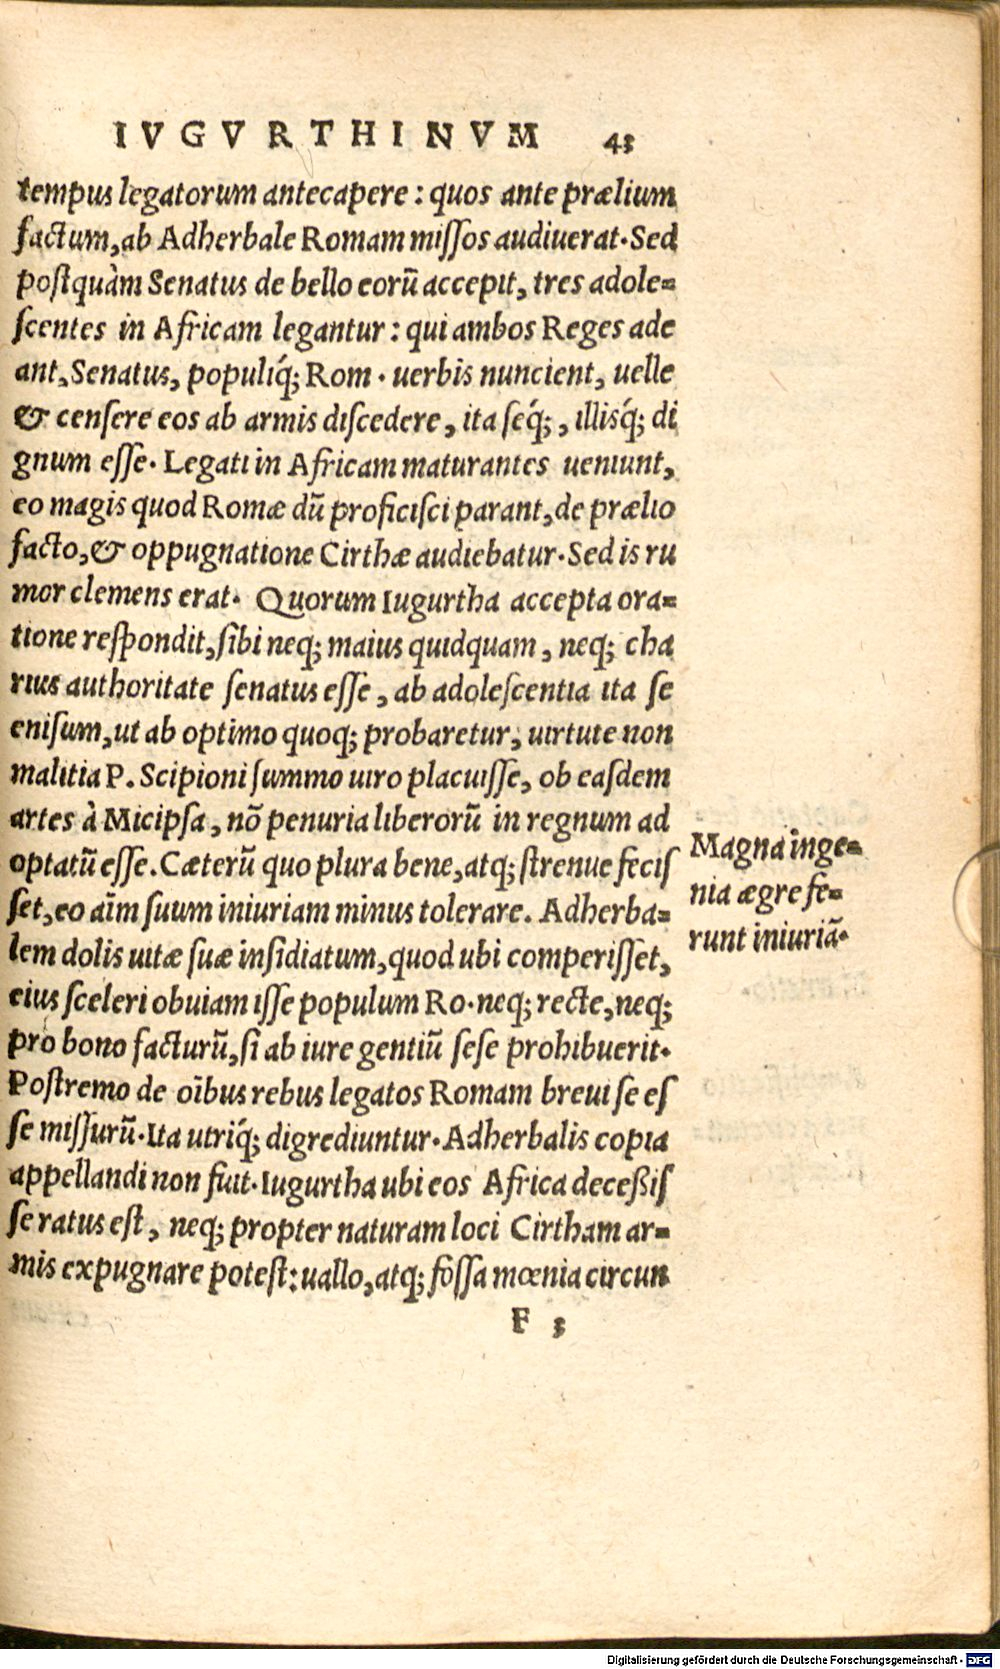 IVGVRTHINVM 43
tempus legatorum antecapere: quos ante prælium
factum, ab Adherbale Romam missos audiuerat. Sed
postquàm Senatus de bello eorū accepit, tres adole=
scentes in Africam legantur: qui ambos Reges ade
ant, Senatus, populiq́; Rom. uerbis nuncient, uelle
& censere eos ab armis discedere, ita seq́;, illisq́; di
gnum esse. Legati in Africam maturantes ueniunt,
eo magis quod Romæ dū proficisci parant, de prælio
facto, & oppugnatione Cirthæ audiebatur. Sed is ru
mor clemens erat. Quorum Iugurtha accepta ora=
tione respondit, sibi neq; maius quidquam, neq; cha
rius authoritate senatus esse, ab adolescentia ita se
enisum, ut ab optimo quoq; probaretur, uirtute non
malitia P. Scipioni summo uiro placuisse, ob easdem
artes à Micipsa, nō penuria liberorū in regnum ad
optatū esse. Cæterū quo plura bene, atq; strenue fecis
set, eo aīm suum iniuriam minus tolerare. Adherba=
lem dolis uitæ suæ insidiatum, quod ubi comperisset,
eius sceleri obuiam isse populum Ro. neq; recte, neq;
pro bono facturū, si ab iure gentiū sese prohibuerit.
Postremo de oībus rebus legatos Romam breui se es
se missurū. Ita utriq́; digrediuntur. Adherbalis copia
appellandi non fuit. Iugurtha ubi eos Africa deceßis
se ratus est, neq; propter naturam loci Cirtham ar=
mis expugnare potest: uallo, atq; fossa mœnia circun
F 3
Magna inge=
nia ægre fe=
runt iniuriā.
Digitalisierung gefördert durch die Deutsche Forschungsgemeinschaft - DFG